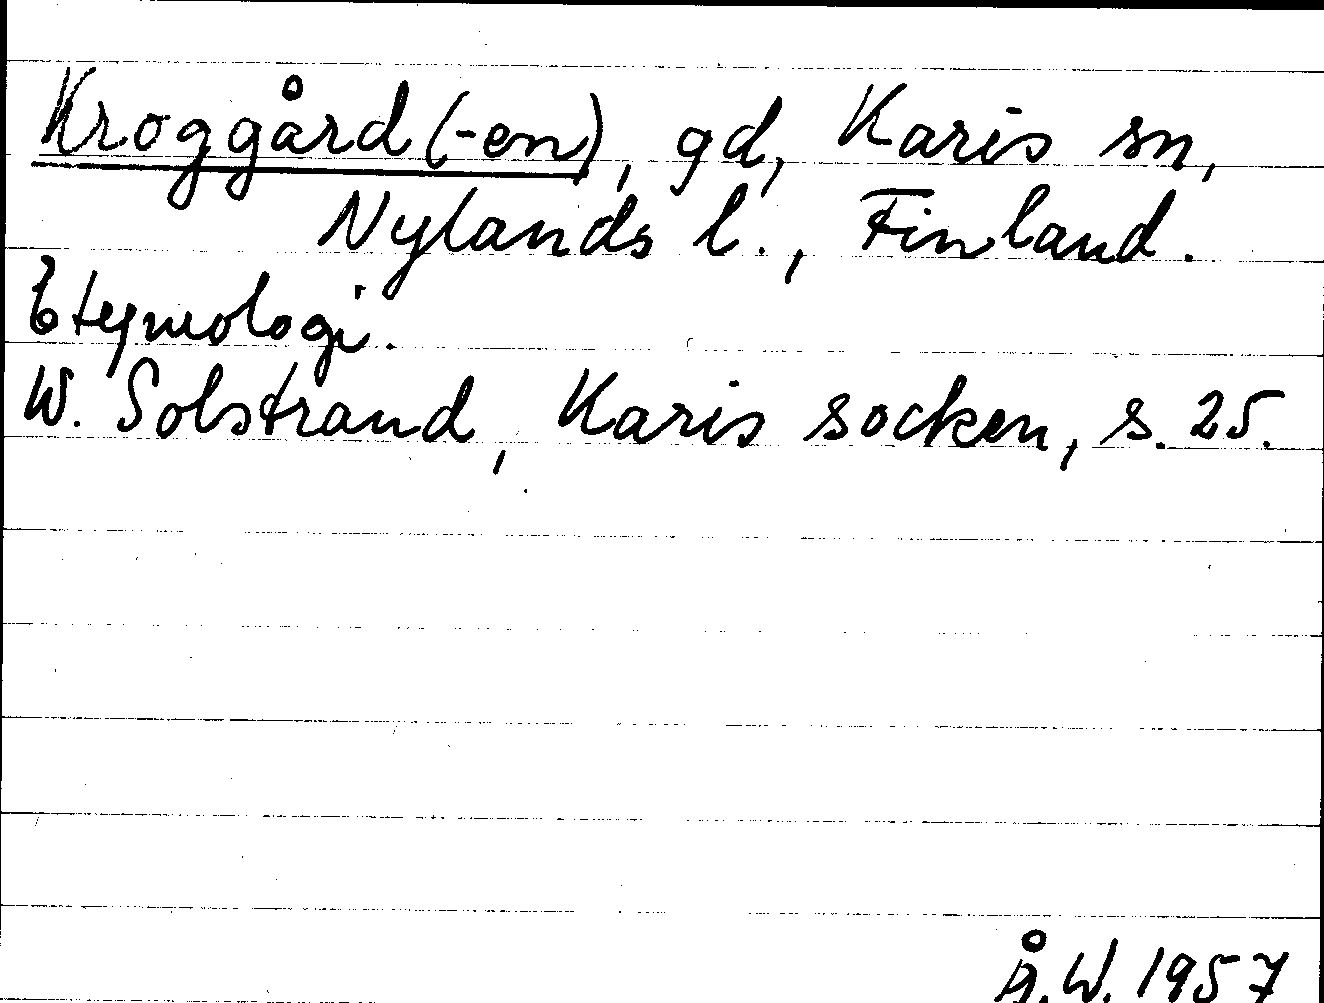 Kroggård (-en), gd, Karis sn,
Nylands l., Finland.
Etymologi.
W. Solstrand, Karis socken, s. 25.
Å.W. 1957